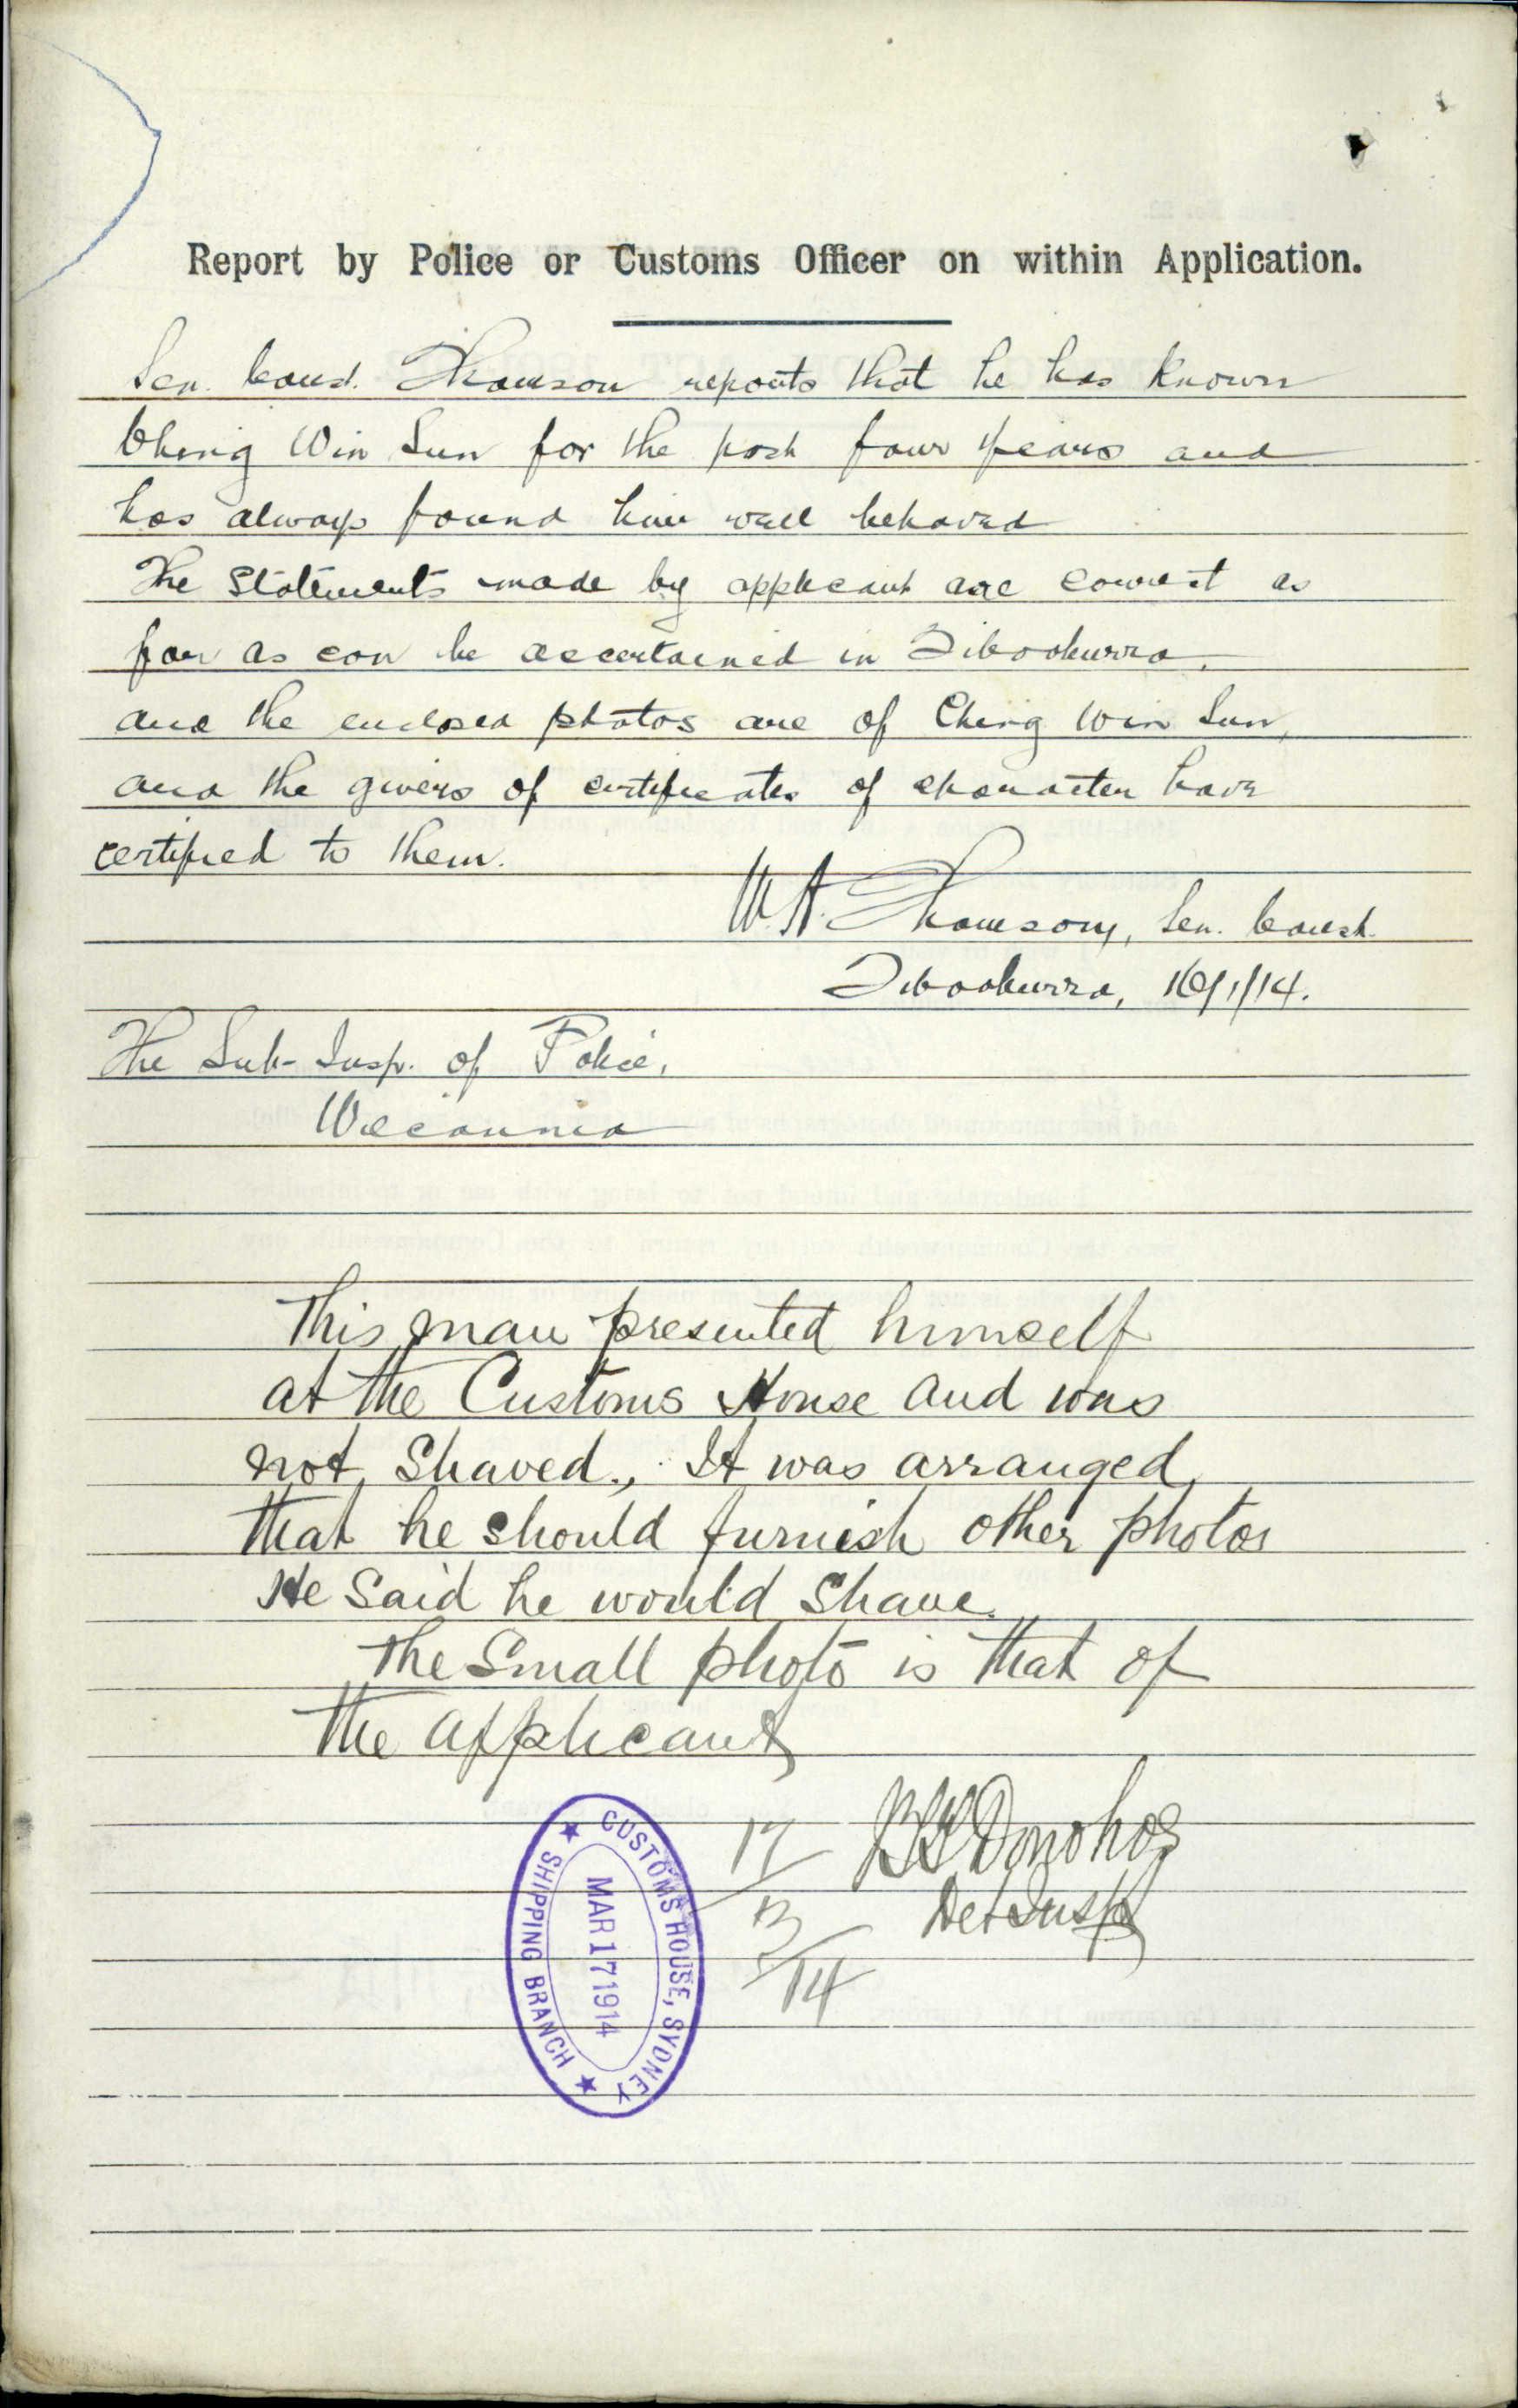 Report by Police or Customs Officer on within Application.
Sen. Const. Thomson reports that he has known
Ching Win Sun for the past four years and
has always found him well behaved
The statements made by applicant are correct as
far as can be ascertained in Tibooburra,
and the enclosed photos are of Ching Win Sun,
and the givers of certificates of character have
certified to them.
W.A. Thomson, Sen. Const.
Tibooburra, 16/1/14.
The Sub-Insp. of Police,
Wilcannia
This man presented himself
at the Customs House and was
not shaved., It was arranged
that he should furnish other photos
He said he would shave.
The small photo is that of
the applicant
Donohoe
Det Insp
17/3/14
CUSTOMS HOUSE, SYDNEY
MAR 17 1914
SHIPPING BRANCH